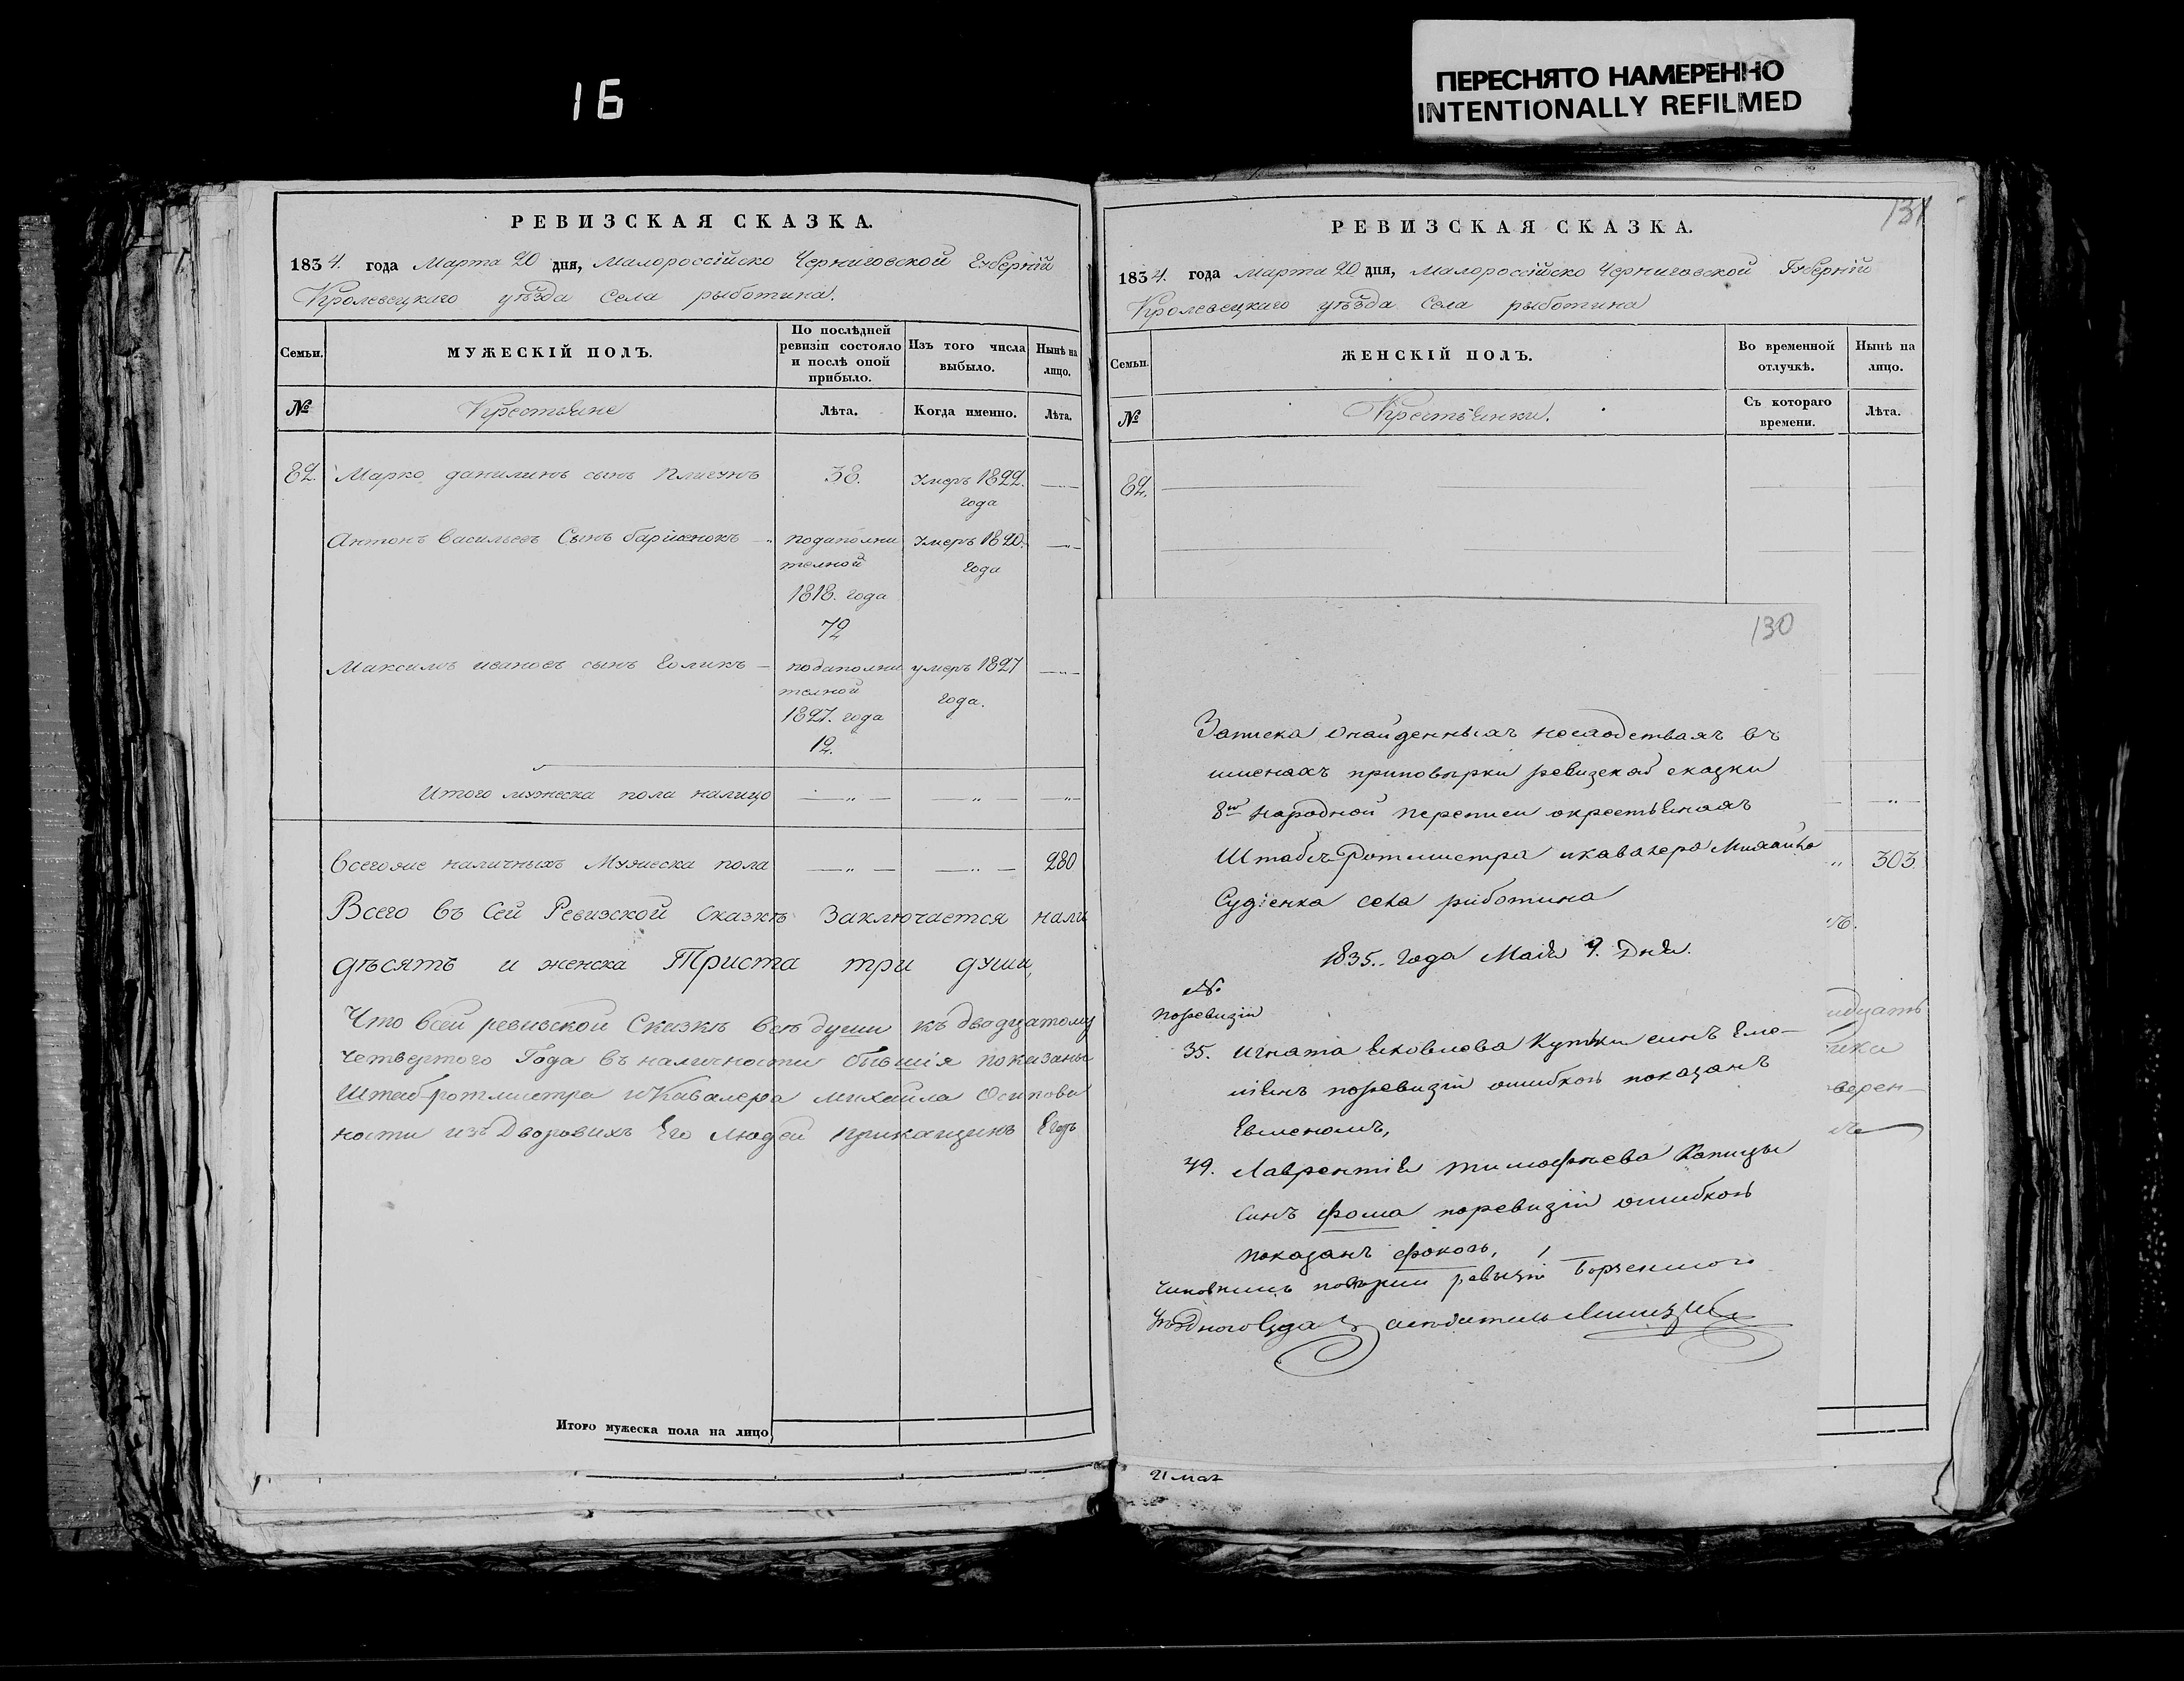 16
ПЕРЕСНЯТО НАМЕРЕННО
INTENTIONALLY REFILMED
РЕВИЗСКАЯ СКАЗКА.
1834. года Марта 20 дня, Малороссійско Черниговской Губерніи
Кролевецкаго уѣзда Села рыботина.
Семьи.
МУЖЕСКІЙ ПОЛЪ.
По послѣдней ревизіи состояло и послѣ оной прибыло.
Изъ того числа выбыло.
Нынѣ на лицо.
№
Крестьяне
Лѣта.
Когда именно.
Лѣта.
82. Марко данилинъ сынъ Плисунъ 38. Умеръ 1822.
года
Антонъ васильевъ Сынъ подаполни Умеръ 1820.
телной года
1818. года
72
Максимъ ивановъ сынъ подаполни умеръ 1827
телной года.
1827. года
12.
Итого мужеска пола налицо
Всегоже наличныхъ Мужеска пола 280
Всего въ Сей Ревизской Сказкѣ Заключается нали
дѣсятъ и женска Триста три души,
Что всей ревизской Сказкѣ всѣ души къ двадцатому
четвертого Года въ наличности бывшія показаны
Штаб ротмистра и Кавалера Михайла Осипова
ности изъ Дворовихъ Его людей прикащикъ Егоръ
Итого мужеска пола на лицо
131
РЕВИЗСКАЯ СКАЗКА.
1834. года марта 20 дня, Малороссійско Черниговской Губерніи
Кролевецкаго уѣзда Села рыботина
Семьи.
ЖЕНСКІЙ ПОЛЪ.
Во временной отлучкѣ.
Нынѣ на лицо.
№
Крестьянки.
Съ котораго времени.
Лѣта.
82.
303.
идцать
верен-
130
Записка онайденныхъ несходствахъ въ
именахъ приповѣрки ревизской сказки
8й народной переписи окрестьянахъ
Штабсъ Ротмистра икавалера Михайла
Судіенка села риботина
1835. года Маія 9. Дня.
№
поревизіи
35. игната Яковлева Кутки синъ Еме-
ліянъ поревизіи ошибкою показанъ
Евменомъ,
49. Лаврентія тимофѣева Капицы
Синъ фома поревизіи ошибкою
показанъ фокою,
Чиновникъ ревизіи Борзенского
21 мая